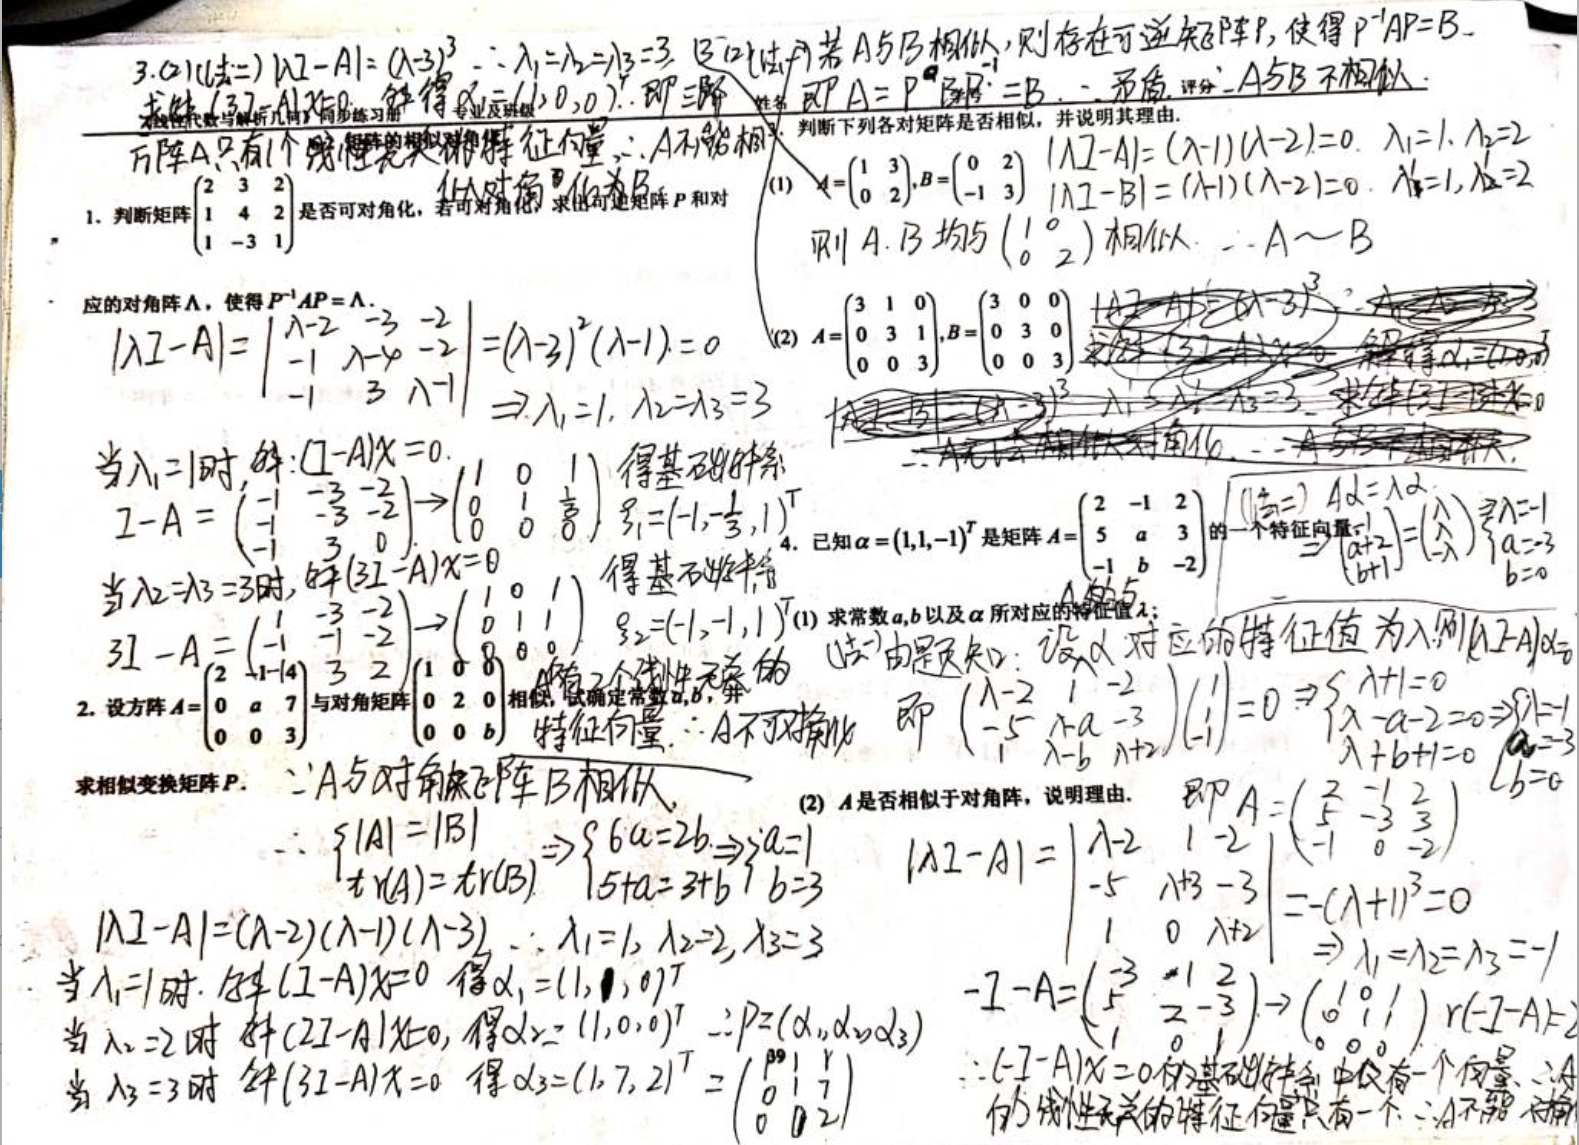 3.(2)(法二) |λI-A|=(λ-3)³ ∴λ₁=λ₂=λ₃=3
求解(3I-A)x=0 解得α₁=(1,0,0)ᵀ. 即三阶
方阵A只有1个线性无关的特征向量 ∴A不能相
似对角化为B
《线性代数与解析几何》同步练习册 专业及班级 姓名 评分
矩阵的相似对角化
1. 判断矩阵 (2 3 2; 1 4 2; 1 -3 1) 是否可对角化，若可对角化，求出可逆矩阵 P 和对
应的对角阵 Λ，使得 P⁻¹AP=Λ.
|λI-A|= |λ-2 -3 -2; -1 λ-4 -2; -1 3 λ-1| =(λ-3)²(λ-1)=0
⇒λ₁=1, λ₂=λ₃=3
当λ₁=1时,解:(I-A)x=0.
I-A= (-1 -3 -2; -1 -3 -2; -1 3 0) → (1 0 1; 0 1 1/3; 0 0 0) 得基础解系
ξ₁=(-1,-1/3,1)ᵀ
当λ₂=λ₃=3时,解(3I-A)x=0
3I-A= (1 -3 -2; -1 -1 -2; -1 3 2) → (1 0 1; 0 1 1; 0 0 0) 得基础解系
ξ₂=(-1,-1,1)ᵀ
A有2个线性无关的
特征向量 ∴A不可对角化
2. 设方阵 A= (2 -1 -14; 0 a 7; 0 0 3) 与对角矩阵 (1 0 0; 0 2 0; 0 0 b) 相似，试确定常数 a,b，并
求相似变换矩阵 P.
∵A与对角矩阵B相似
∴ {|A|=|B| tr(A)=tr(B) ⇒ {6a=2b 5+a=3+b ⇒ {a=1 b=3
|λI-A|=(λ-2)(λ-1)(λ-3) ∴λ₁=1, λ₂=2, λ₃=3
当λ₁=1时.解(I-A)x=0 得α₁=(1,1,0)ᵀ
当λ₂=2时 解(2I-A)x=0,得α₂=(1,0,0)ᵀ ∴P=(α₁,α₂,α₃)
当λ₃=3时 解(3I-A)x=0 得α₃=(1,7,2)ᵀ
39
(2)(法一)若A与B相似,则存在可逆矩阵P,使得P⁻¹AP=B.
即A=PBP⁻¹=B ∴矛盾 ∴A与B不相似.
3. 判断下列各对矩阵是否相似，并说明其理由.
(1) A= (1 3; 0 2), B= (0 2; -1 3) |λI-A|=(λ-1)(λ-2)=0. λ₁=1, λ₂=2
|λI-B|=(λ-1)(λ-2)=0. λ₁'=1, λ₂'=2
则A.B均与 (1 0; 0 2) 相似. ∴A~B
(2) A= (3 1 0; 0 3 1; 0 0 3), B= (3 0 0; 0 3 0; 0 0 3)
4. 已知 α=(1,1,-1)ᵀ 是矩阵 A= (2 -1 2; 5 a 3; -1 b -2) 的一个特征向量，
(法二) Aα=λα
⇒ (-1; a+2; b+1) = (λ; λ; -λ) ⇒ {λ=-1 a=-3 b=0
(1) 求常数 a,b 以及 α 所对应的特征值 λ；
(法一)由是页知:设α对应的特征值为λ则(λI-A)α=0
即 (λ-2 1 -2; -5 λ-a -3; 1 λ-b λ+2) (1; 1; -1) =0 ⇒ {λ+1=0 λ-a-2=0 λ+b+1=0 ⇒ {λ=-1 a=-3 b=0
(2) A是否相似于对角阵，说明理由.
即A= (2 -1 2; 5 -3 3; -1 0 -2)
|λI-A|= |λ-2 1 -2; -5 λ+3 -3; 1 0 λ+2| =-(λ+1)³=0
⇒λ₁=λ₂=λ₃=-1
-I-A= (-3 1 2; 5 2 -3; 1 0 1) → (1 0 1; 0 1 1; 0 0 0) r(-I-A)=2
∴(-I-A)x=0的基础解系中仅有一个向量 ∴A
的线性无关的特征向量只有一个.∴A不能对角